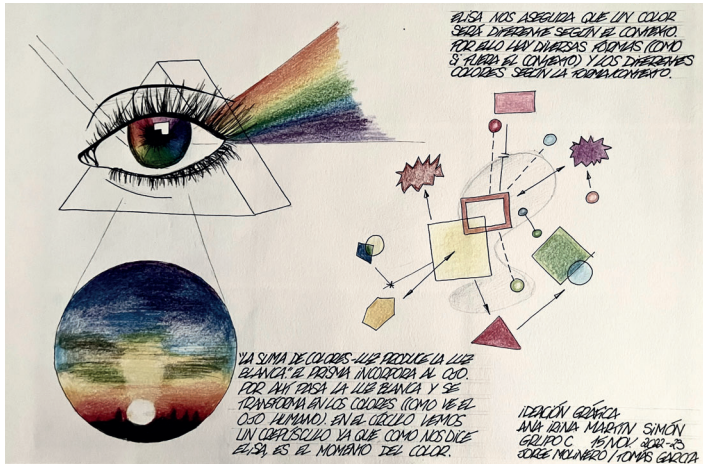 ELISA NOS ASEGURA QUE UN COLOR
SERÁ DIFERENTE SEGÚN EL CONTEXTO.
POR ELLO HAY DIVERSAS FORMAS (COMO
SI FUERA EL CONTEXTO) Y LOS DIFERENTES
COLORES SEGÚN LA FORMA/CONTEXTO.
"LA SUMA DE COLORES-LUZ PRODUCE LA LUZ
BLANCA" EL PRISMA INCORPORA AL OJO.
POR AHÍ PASA LA LUZ BLANCA Y SE
TRANSFORMA EN LOS COLORES (COMO VE EL
OJO HUMANO). EN EL CÍRCULO VEMOS
UN CREPÚSCULO YA QUE COMO NOS DICE
ELISA, ES EL MOMENTO DEL COLOR.
IDEACIÓN GRÁFICA
ANA IRINA MARTIN SIMÓN
GRUPO C 15 NOV. 2022-23
JORGE MOLINERO / TOMÁS GARCÍA